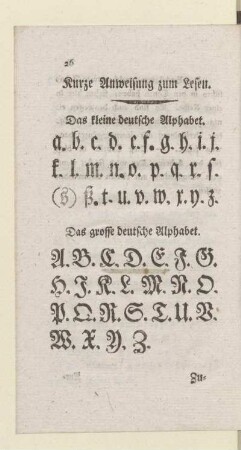 26
Kurze Anweisung zum Lesen.
Das kleine deutsche Alphabet.
a. b. c. d. e. f. g. h. i. j.
k. l. m. n. o. p. q. r. s.
(s) ß. t. u. v. w. x. y. z.
Das grosse deutsche Alphabet.
A. B. C. D. E. F. G.
H. J. K. L. M. N. O.
P. Q. R. S. T. U. V.
W. X. Y. Z.
Zu-